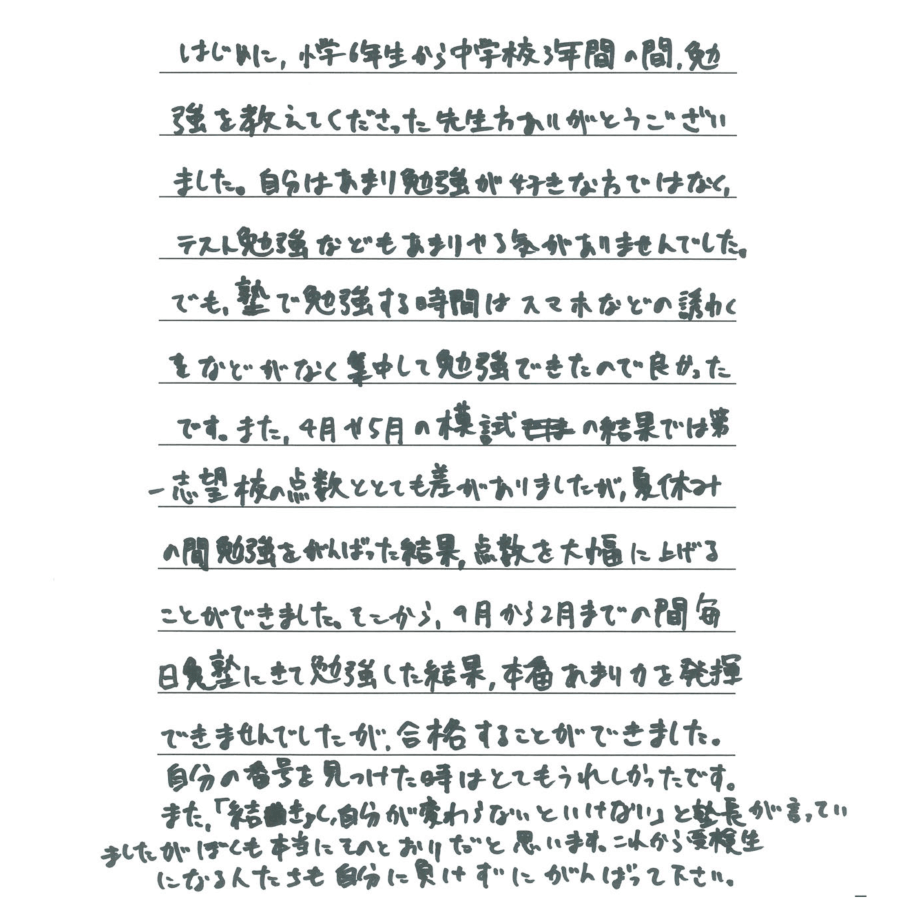 はじめに、小学6年生から中学校3年間の間、勉
強を教えてくださった先生方ありがとうござい
ました。自分はあまり勉強が好きな方ではなく、
テスト勉強などもあまりやる気がありませんでした。
でも、塾で勉強する時間はスマホなどの誘わく
をなどがなく集中して勉強できたので良かった
です。また、4月や5月の模試の結果では第
一志望校の点数ととても差がありましたが、夏休み
の間勉強をがんばった結果、点数を大幅に上げる
ことができました。そこから、9月から2月までの間毎
日兔塾にきて勉強した結果、本番あまり力を発揮
できませんでしたが、合格することができました。
自分の番号を見つけた時はとてもうれしかったです。
また、「結きょく、自分が変わらないといけない」と塾長が言ってい
ましたがぼくも本当にそのとおりだと思います。これから受検生
になる人たちも自分に負けずにがんばって下さい。